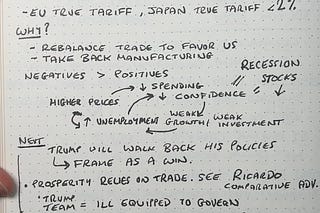 - EU TRUE TARIFF, JAPAN TRUE TARIFF <2%
WHY?
- REBALANCE TRADE TO FAVOR US
- TAKE BACK MANUFACTURING
NEGATIVES > POSITIVES
RECESSION
↓ SPENDING // STOCKS
HIGHER PRICES → ↓ CONFIDENCE = ↓
WEAK
↑ UNEMPLOYMENT GROWTH / WEAK INVESTMENT
NEXT
TRUMP WILL WALK BACK HIS POLICIES
↳ FRAME AS A WIN.
• PROSPERITY RELIES ON TRADE. SEE RICARDO
COMPARATIVE ADV.
• TRUMP
TEAM = ILL EQUIPPED TO GOVERN